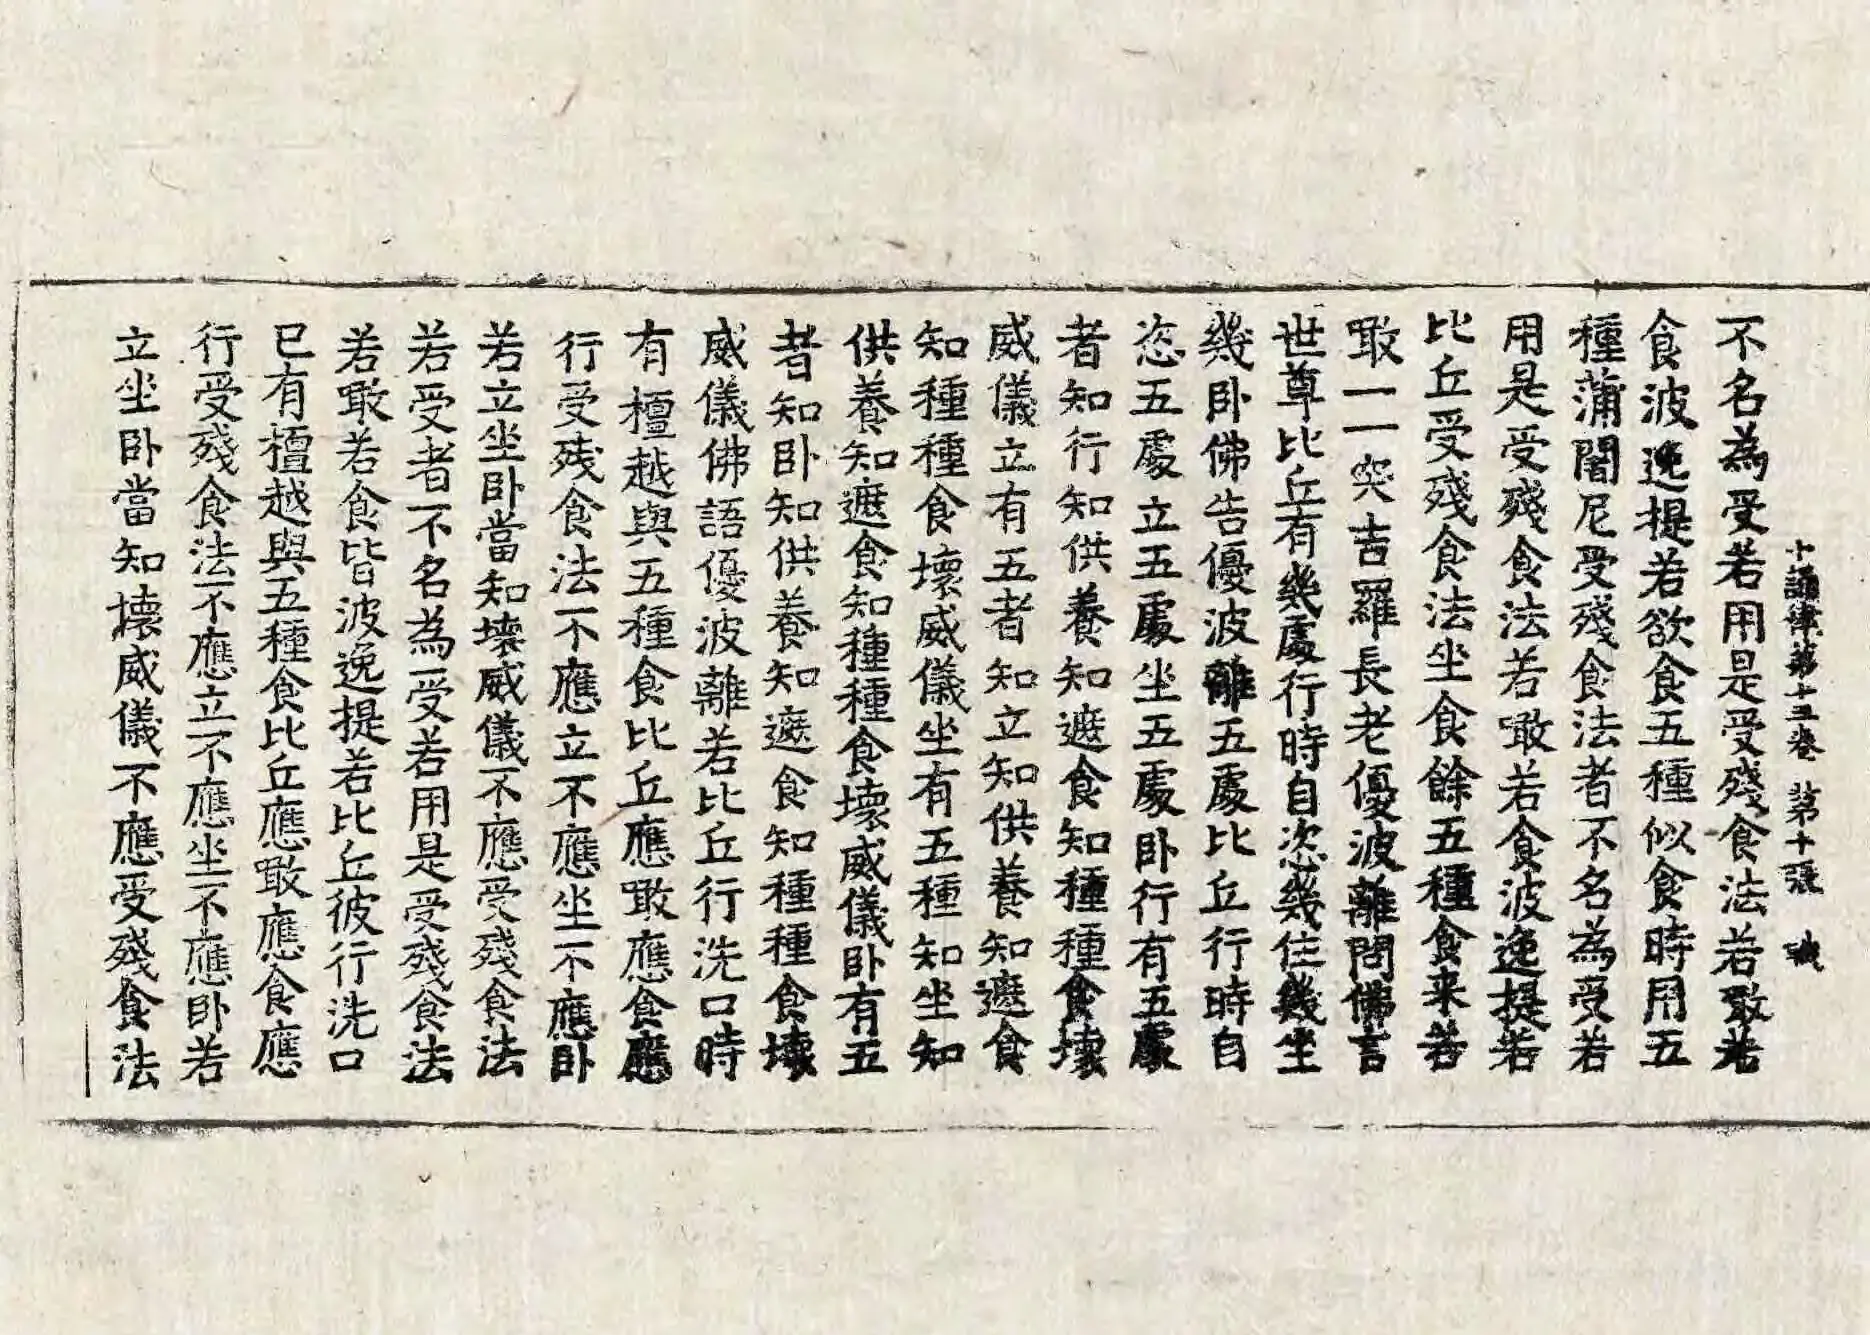 十誦律第十三卷 第十張 諴
不名為受若用是受殘食法若噉若
食波逸提若欲食五種似食時用五
種蒲闍尼受殘食法者不名為受若
用是受殘食法若噉若食波逸提若
比丘受殘食法坐食餘五種食来若
噉一一突吉羅長老優波離問佛言
世尊比丘有幾處行時自恣幾住幾坐
幾卧佛告優波離五處比丘行時自
恣五處立五處坐五處卧行有五處
者知行知供養知遮食知種種食壞
威儀立有五者知立知供養知遮食
知種種食壞威儀坐有五種知坐知
供養知遮食知種種食壞威儀卧有五
者知卧知供養知遮食知種種食壞
威儀佛語優波離若比丘行洗口時
有檀越與五種食比丘應噉應食應
行受残食法不應立不應坐不應卧
若立坐卧當知壞威儀不應受殘食法
若受者不名為受若用是受殘食法
若噉若食皆波逸提若比丘彼行洗口
已有檀越與五種食比丘應噉應食應
行受殘食法不應立不應坐不應卧若
立坐卧當知壞威儀不應受殘食法